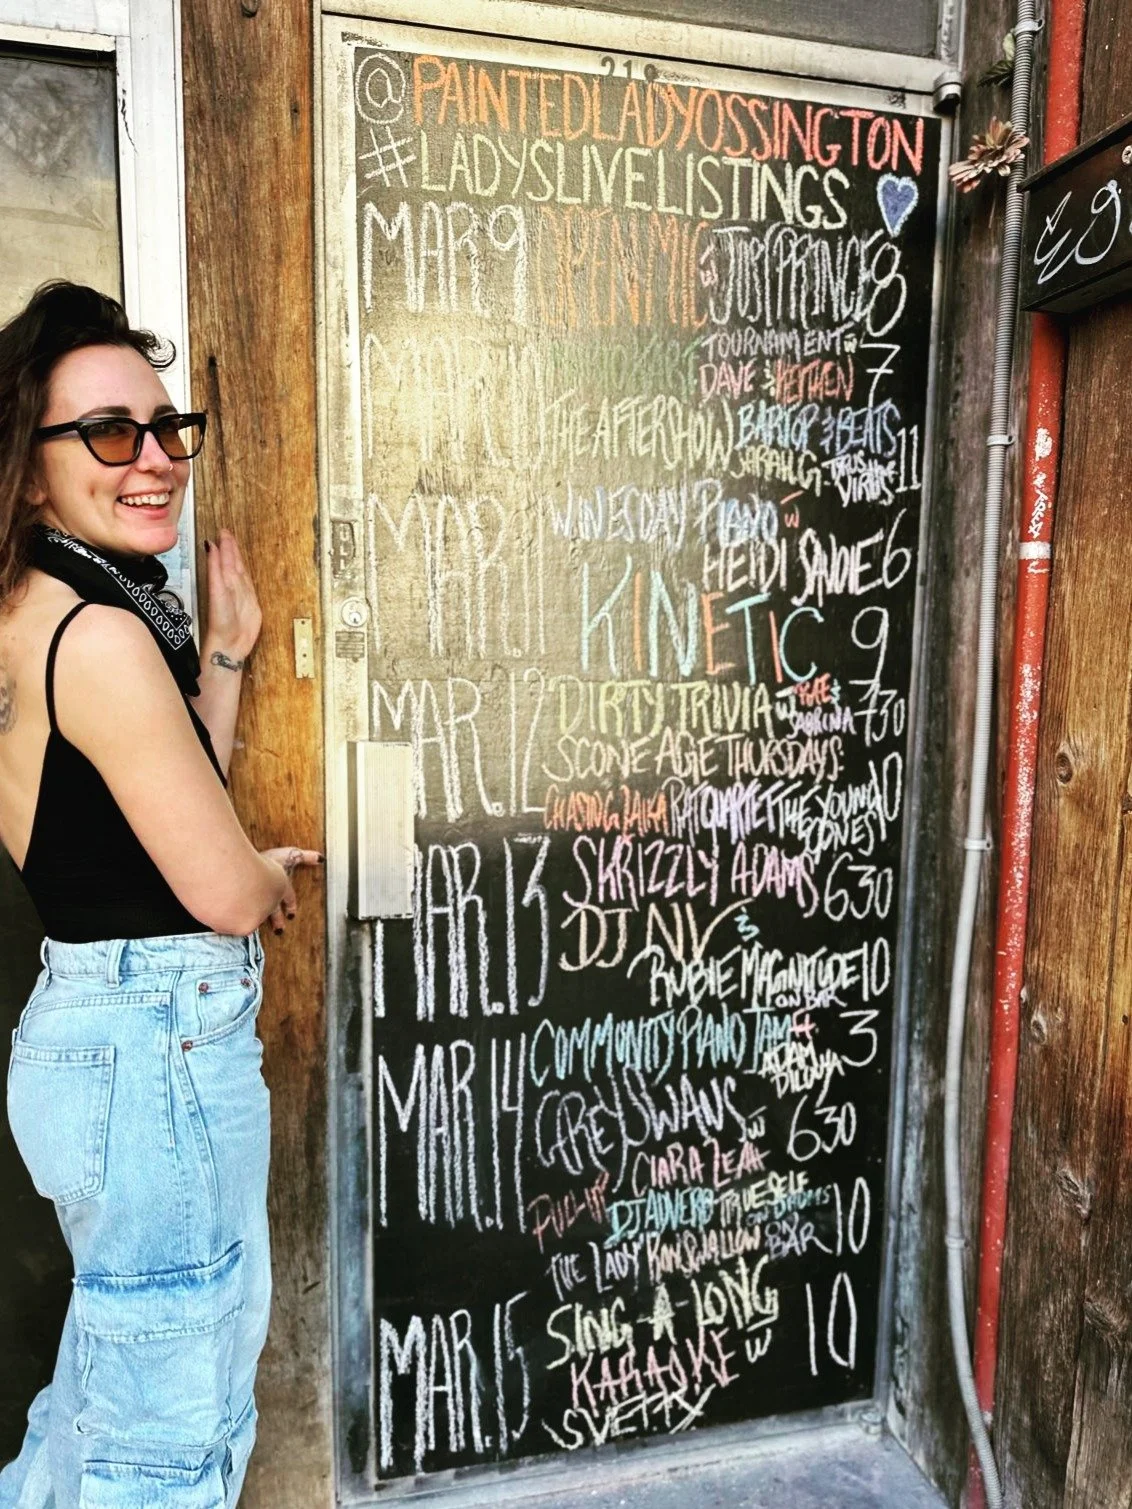 218
@PAINTEDLADYOSSINGTON
#LADYSLIVELISTINGS
MAR 9 OPEN MIC W JUST PRINCE 8
MAR. 10 TOURNAMENT W
DAVE & 7
THE AFTERSHOW BARTOP & BEATS
SARAH G. VIRUS 11
MAR. 11 WINESDAY PIANO W
HEIDI SAVOIE 6
KINETIC 9
MAR. 12 DIRTY TRIVIA W & SABRINA 730
SCONE AGE THURSDAYS:
CHASING ZAIKA RAT QUARTET THE YOUNG 10
MAR. 13 SKRIZZLY ADAMS 630
DJ NV &
RUBIE MAGNITUDE 10
ON BAR
MAR. 14 COMMUNITY PIANO JAM 3
ADAM
GREY SWANS W 630
CIARA LEAH
PULL UP DJ ADVERB TRUE SELF
ON DRUMS 10
THE LADY RON SWALLOW BAR
MAR. 15 SING-A-LONG 10
KARAOKE W
SVETTY